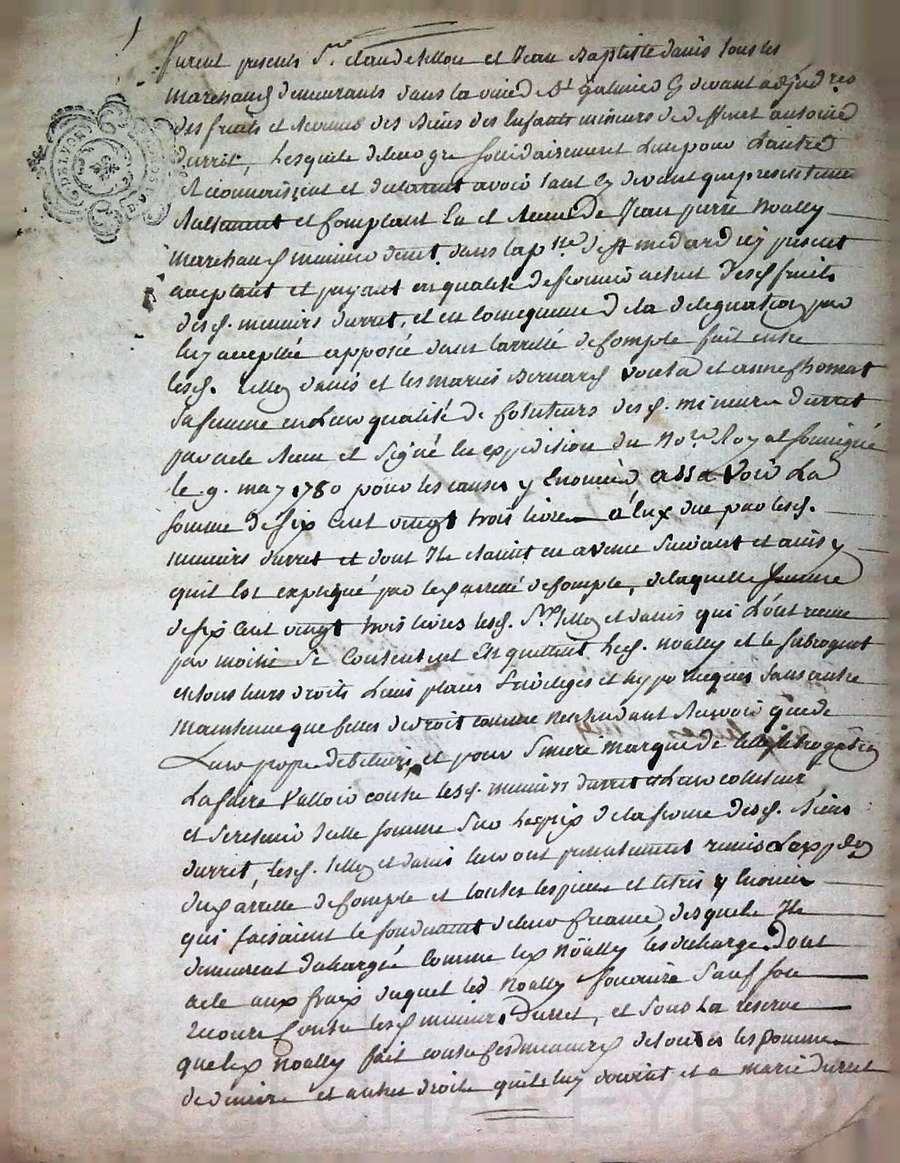 furent presents Sr. claude tellou et Jean Baptiste danis tous les
marchands demeurants dans la ville de St galmier cy devant adjud res
des fruits et revenus des biens des Enfants mineurs de deffunt antoine
durret, Lesquels de leur gre solidairement L'un pour L'autre
et connoissent et declarent avoir tant cy devant que presentement
Reellement et Comptant Eu et Receu de Jean pierre Noally
marchand meunier demt. dans la psse de St medard icy present
acceptant et payant en qualité de fermier actuel desd. fruits
desd. mineurs durret, et en consequence de la delegation par
luy acceptée apposée dans l'arrêté de Compte fait entre
lesd. tellou danis et les mariés Bernard et anne thomas
sa femme en Leur qualité de Cotuteurs desd. mineurs durret
par acte Receu et signé En expedition du Nore. Royal soussigné
le 9. may 1780 pour les causes y Enoncées assavoir La
somme de six cent vingt trois livres a Eux due par lesd.
mineurs durret et dont Ils etaient en avance suivant et ainsy
quil Est expliqué par led arrêté de Compte, de laquelle somme
de six cent vingt trois livres lesd. Srs. tellou et danis qui L'ont receue
par moitié se Contentent En quittent Led. Noally et le subrogent
en tous leurs droits Lieux places privileges et hypotheques sans autre
maintenue que celles de droit comme n'entendant Recevoir que de
Leur propre debiteur, et pour sincere marque de lad subrogation
La faire valloir contre lesd. mineurs durret
et se retenir d'elle somme sur Le prix de la ferme desd. Biens
durret, Lesd. tellou et danis luy ont presentement remis L'expedon
dud arrêté de Compte et toutes les pieces et titres y Enoncés
qui faisaient le fondement de leur Creance, desquels Ils
demeurent dechargés comme led Noally les decharge. Dont
acte aux frais duquel led Noally fournira sauf son
recours Contre lesd mineurs durret, et sous La reserve
que led Noally fait de toutes les sommes
de deniers et autres droits quils luy doivent et a marie durret
Pascal CHAREYRON